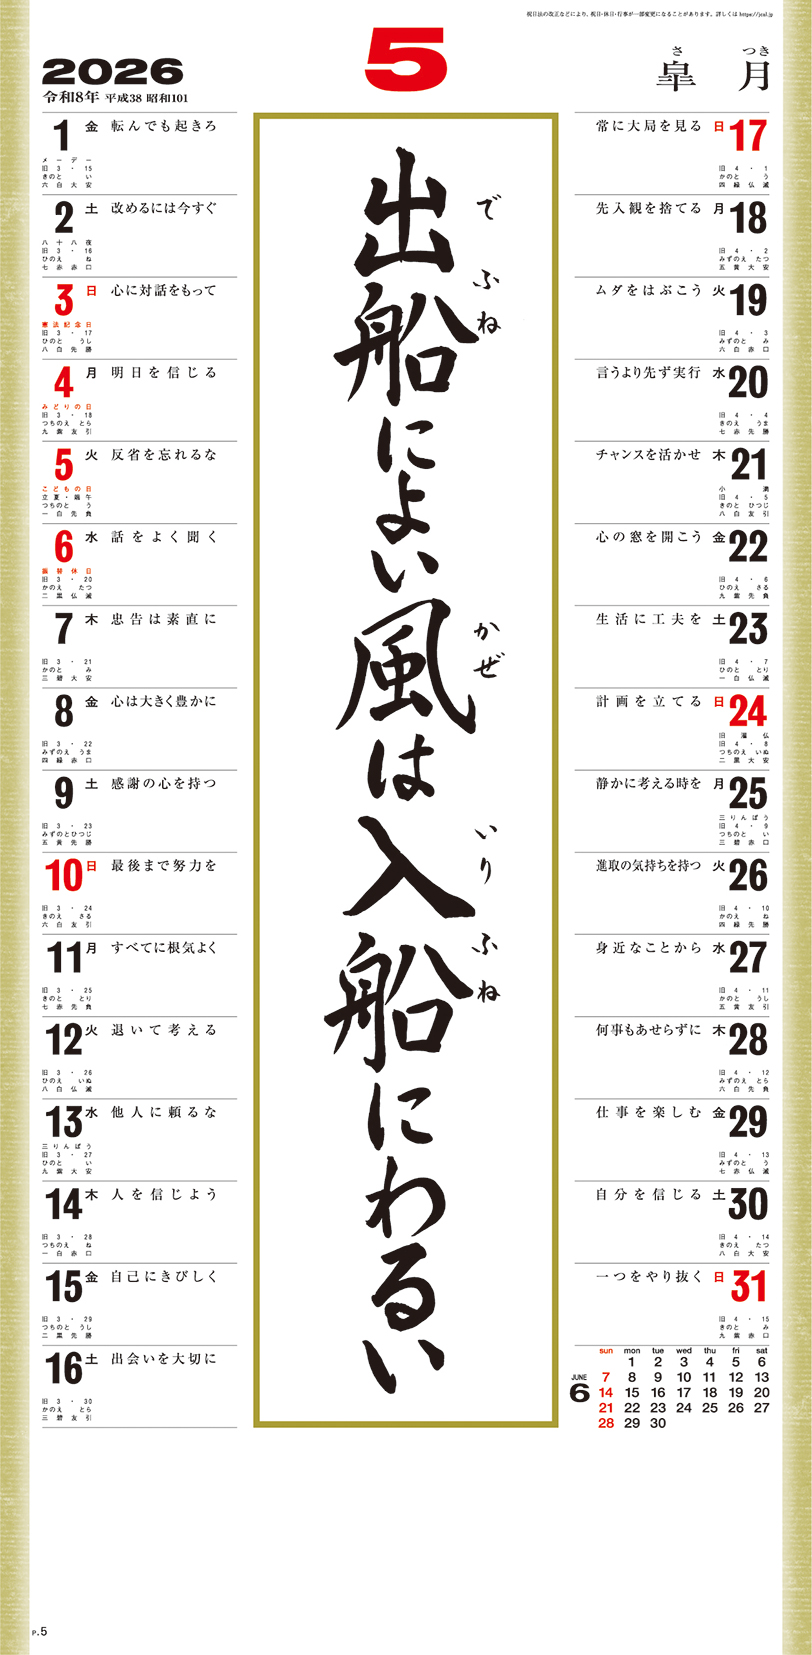 祝日法の改正などにより、祝日・休日・行事が一部変更になることがあります。詳しくは https://jcal.jp
2026
令和8年 平成38 昭和101
5
さ つき
皐月
出船によい風は入船にわるい
でふね かぜ いりふね
1 金 転んでも起きろ
メーデー
旧 3・15
きのと い
六白大安
2 土 改めるには今すぐ
八十八夜
旧 3・16
ひのえ ね
七赤赤口
3 日 心に対話をもって
憲法記念日
旧 3・17
ひのと うし
八白先勝
4 月 明日を信じる
みどりの日
旧 3・18
つちのえ とら
九紫友引
5 火 反省を忘れるな
こどもの日
立夏・端午
つちのと う
一白先負
6 水 話をよく聞く
振替休日
旧 3・20
かのえ たつ
二黒仏滅
7 木 忠告は素直に
旧 3・21
かのと み
三碧大安
8 金 心は大きく豊かに
旧 3・22
みずのえ うま
四緑赤口
9 土 感謝の心を持つ
旧 3・23
みずのとひつじ
五黄先勝
10 日 最後まで努力を
旧 3・24
きのえ さる
六白友引
11 月 すべてに根気よく
旧 3・25
きのと とり
七赤先負
12 火 退いて考える
旧 3・26
ひのえ いぬ
八白仏滅
13 水 他人に頼るな
三りんぼう
旧 3・27
ひのと い
九紫大安
14 木 人を信じよう
旧 3・28
つちのえ ね
一白赤口
15 金 自己にきびしく
旧 3・29
つちのと うし
二黒先勝
16 土 出会いを大切に
旧 3・30
かのえ とら
三碧友引
常に大局を見る 日 17
旧 4・1
かのと う
四緑仏滅
先入観を捨てる 月 18
旧 4・2
みずのえ たつ
五黄大安
ムダをはぶこう 火 19
旧 4・3
みずのと み
六白赤口
言うより先ず実行 水 20
旧 4・4
きのえ うま
七赤先勝
チャンスを活かせ 木 21
小満
旧 4・5
きのと ひつじ
八白友引
心の窓を開こう 金 22
旧 4・6
ひのえ さる
九紫先負
生活に工夫を 土 23
旧 4・7
ひのと とり
一白仏滅
計画を立てる 日 24
旧灌仏
旧 4・8
つちのえ いぬ
二黒大安
静かに考える時を 月 25
三りんぼう
旧 4・9
つちのと い
三碧赤口
進取の気持ちを持つ 火 26
旧 4・10
かのえ ね
四緑先勝
身近なことから 水 27
旧 4・11
かのと うし
五黄友引
何事もあせらずに 木 28
旧 4・12
みずのえ とら
六白先負
仕事を楽しむ 金 29
旧 4・13
みずのと う
七赤仏滅
自分を信じる 土 30
旧 4・14
きのえ たつ
八白大安
一つをやり抜く 日 31
旧 4・15
きのと み
九紫赤口
JUNE
6
sun mon tue wed thu fri sat
1 2 3 4 5 6
7 8 9 10 11 12 13
14 15 16 17 18 19 20
21 22 23 24 25 26 27
28 29 30
P.5